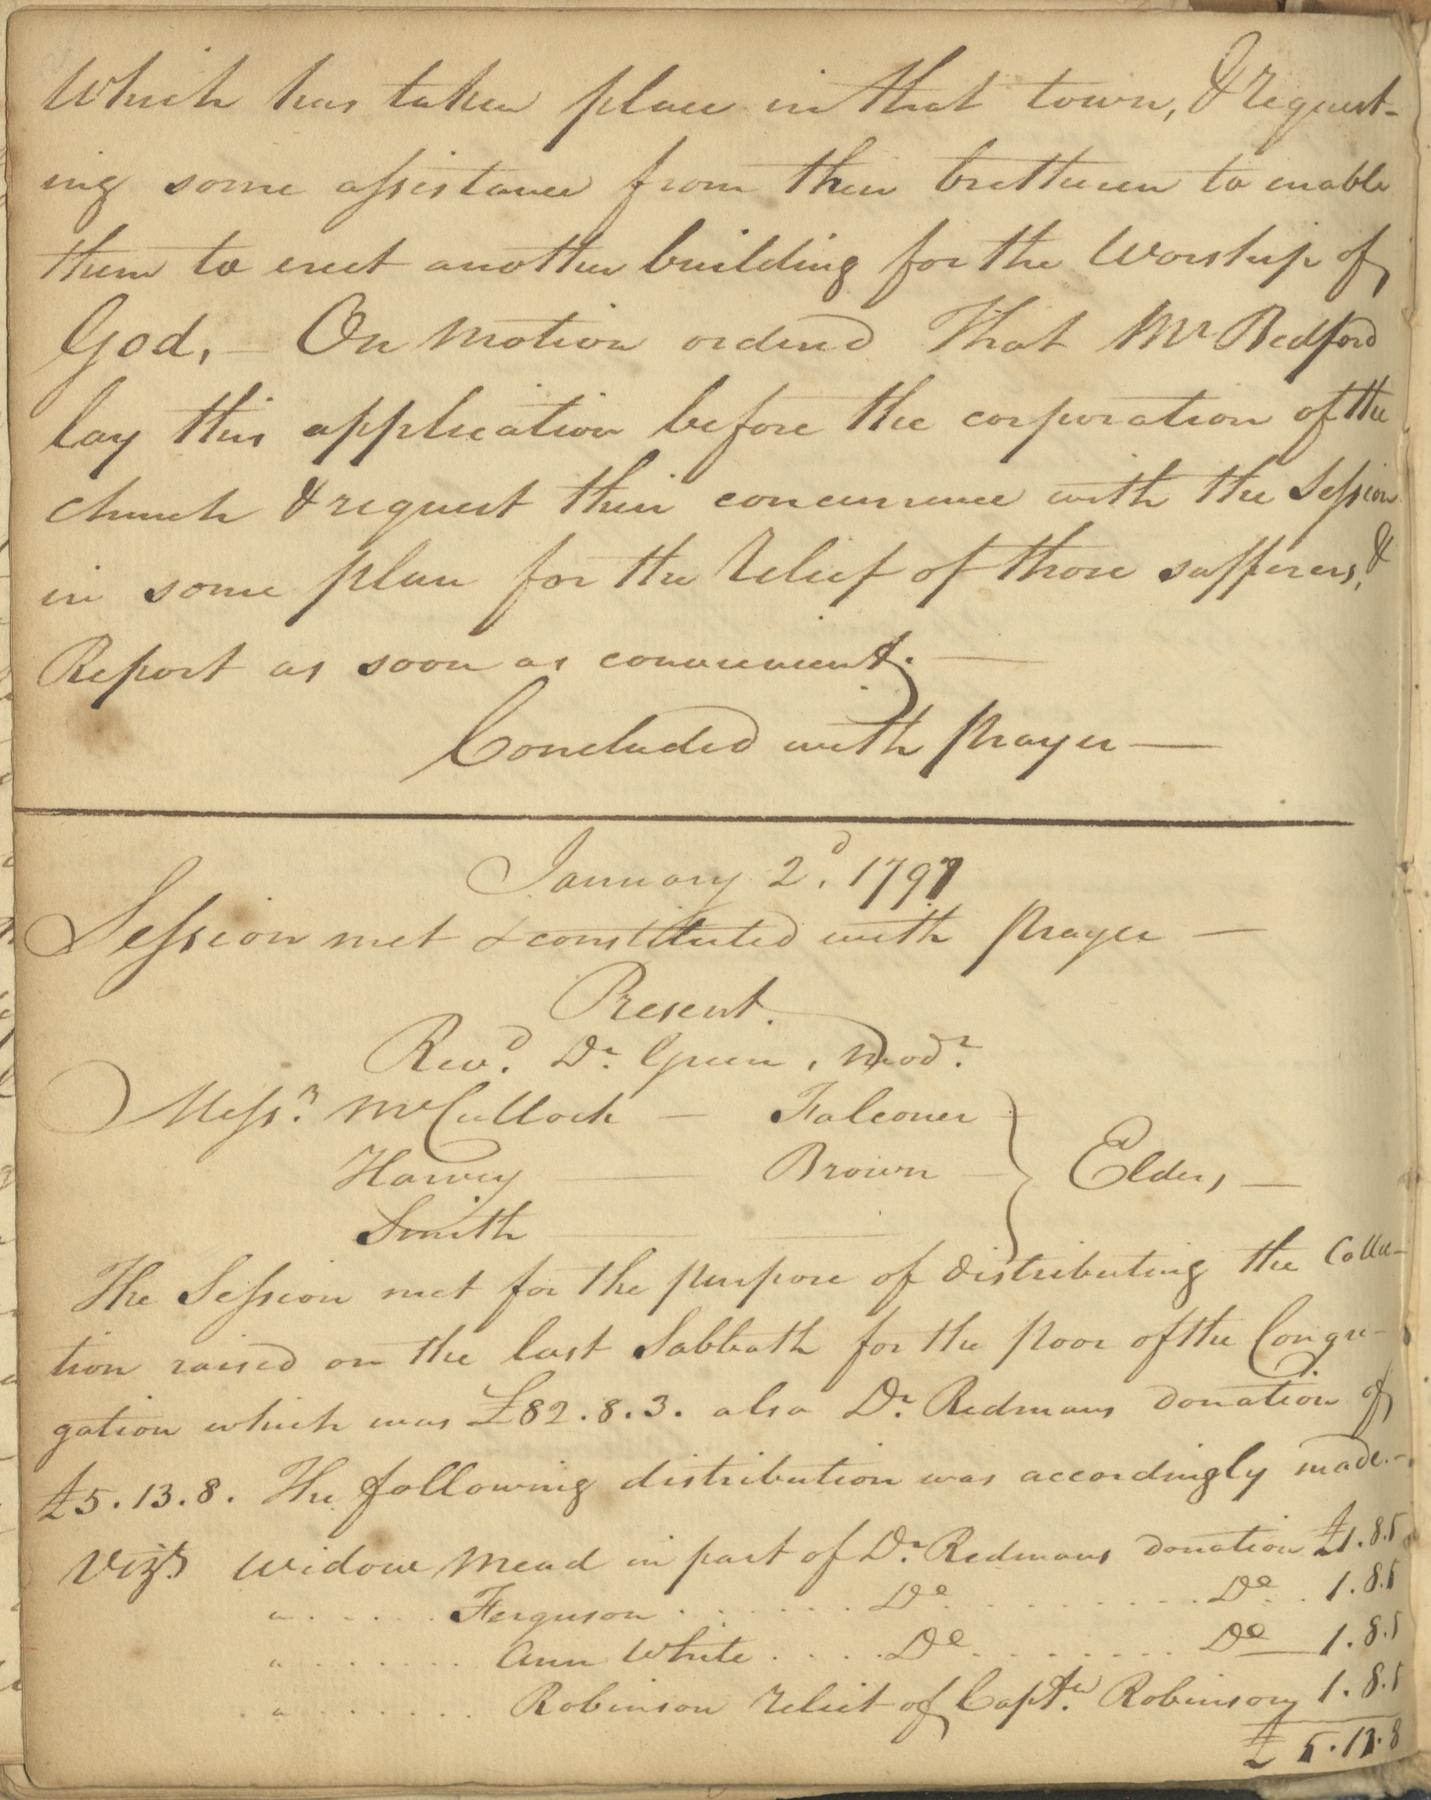 Which has taken place in that town, & request-
ing some assistance from their brethren to enable
them to erect another building for the Worship of
God. — On Motion ordered That Mr Bedford
lay this application before the corporation of the
church & request their concurrence with the Session
in some plan for the Relief of those sufferers, &
Report as soon as convenient. —
Concluded with prayer —
January 2d. 1797
Session met & constituted with prayer —
Present.
Revd. Dr. Green, Modr.
Messrs. McCulloch — Falconer
Harvey — Brown — Elders —
Smith —
The Session met for the purpose of distributing the Collec-
tion raised on the last Sabbath for the poor of the Congre-
gation which was £82.8.3. also Dr. Redmans donation of
£5.13.8. The following distribution was accordingly made. -
Vizt. Widow Mead in part of Dr. Redmans donation £1.8.5
" . . . . . Ferguson . . . . . . Do . . . . . . . . . Do . . 1.8.5
" . . . . . . . Ann White . . . . . Do . . . . . . . Do — 1.8.5
" . . . . . . . Robinson relict of Captn. Robinson 1.8.5
£ 5.13.8